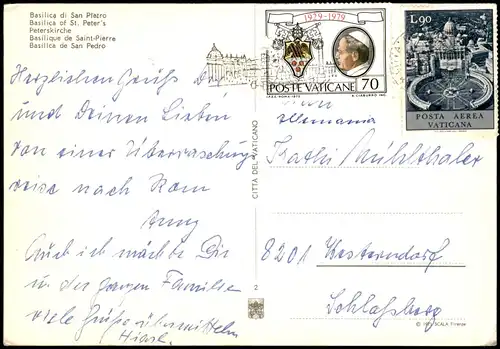 Basilica di San Pietro
Basilica of St. Peter's
Peterskirche
Basilique de Saint-Pierre
Basilica de San Pedro
1929-1979
POSTE VATICANE 70
L.90
POSTA AEREA
VATICANA
Herzlichen Grüße Dir
und Deinen Lieben
von einer Überraschungs
reise nach Rom
Auch ich möchte Dir
u. der ganzen Familie
viele Grüße übermitteln
CITTÀ DEL VATICANO
2
Allemania
Kathi Mühlthaler
8201 Westerndorf
Schloßberg
SCALA Firenze